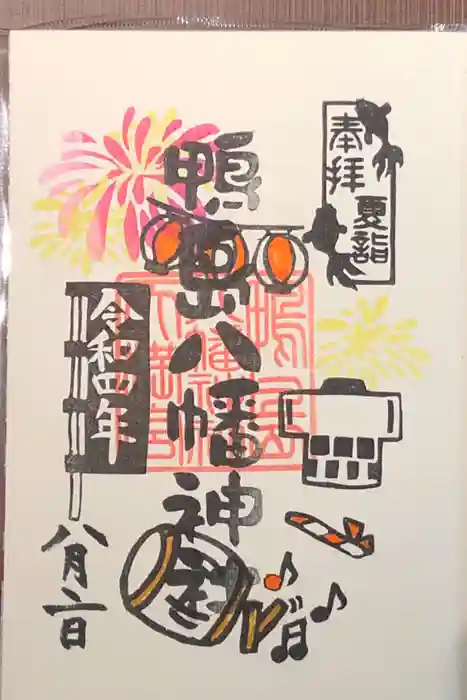 奉拝
夏詣
鴨島八幡神社
令和四年
八月二日